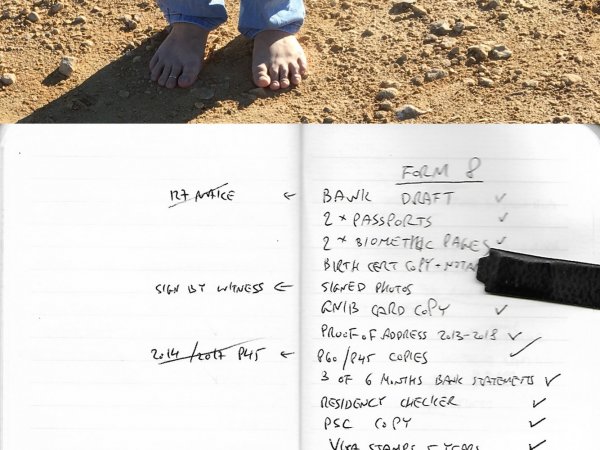 FORM 8
BANK DRAFT ✓
2 x PASSPORTS ✓
2 x BIOMETRIC PAGES ✓
BIRTH CERT COPY +
SIGN BY WITNESS ← SIGNED PHOTOS
GNIB CARD COPY ✓
PROOF OF ADDRESS 2013-2018 ✓
2014/2017 P45 ← P60/P45 COPIES ✓
3 OF 6 MONTHS BANK STATEMENTS ✓
RESIDENCY CHECKER ✓
PSC COPY ✓
VISA STAMPS 5 YEARS ✓